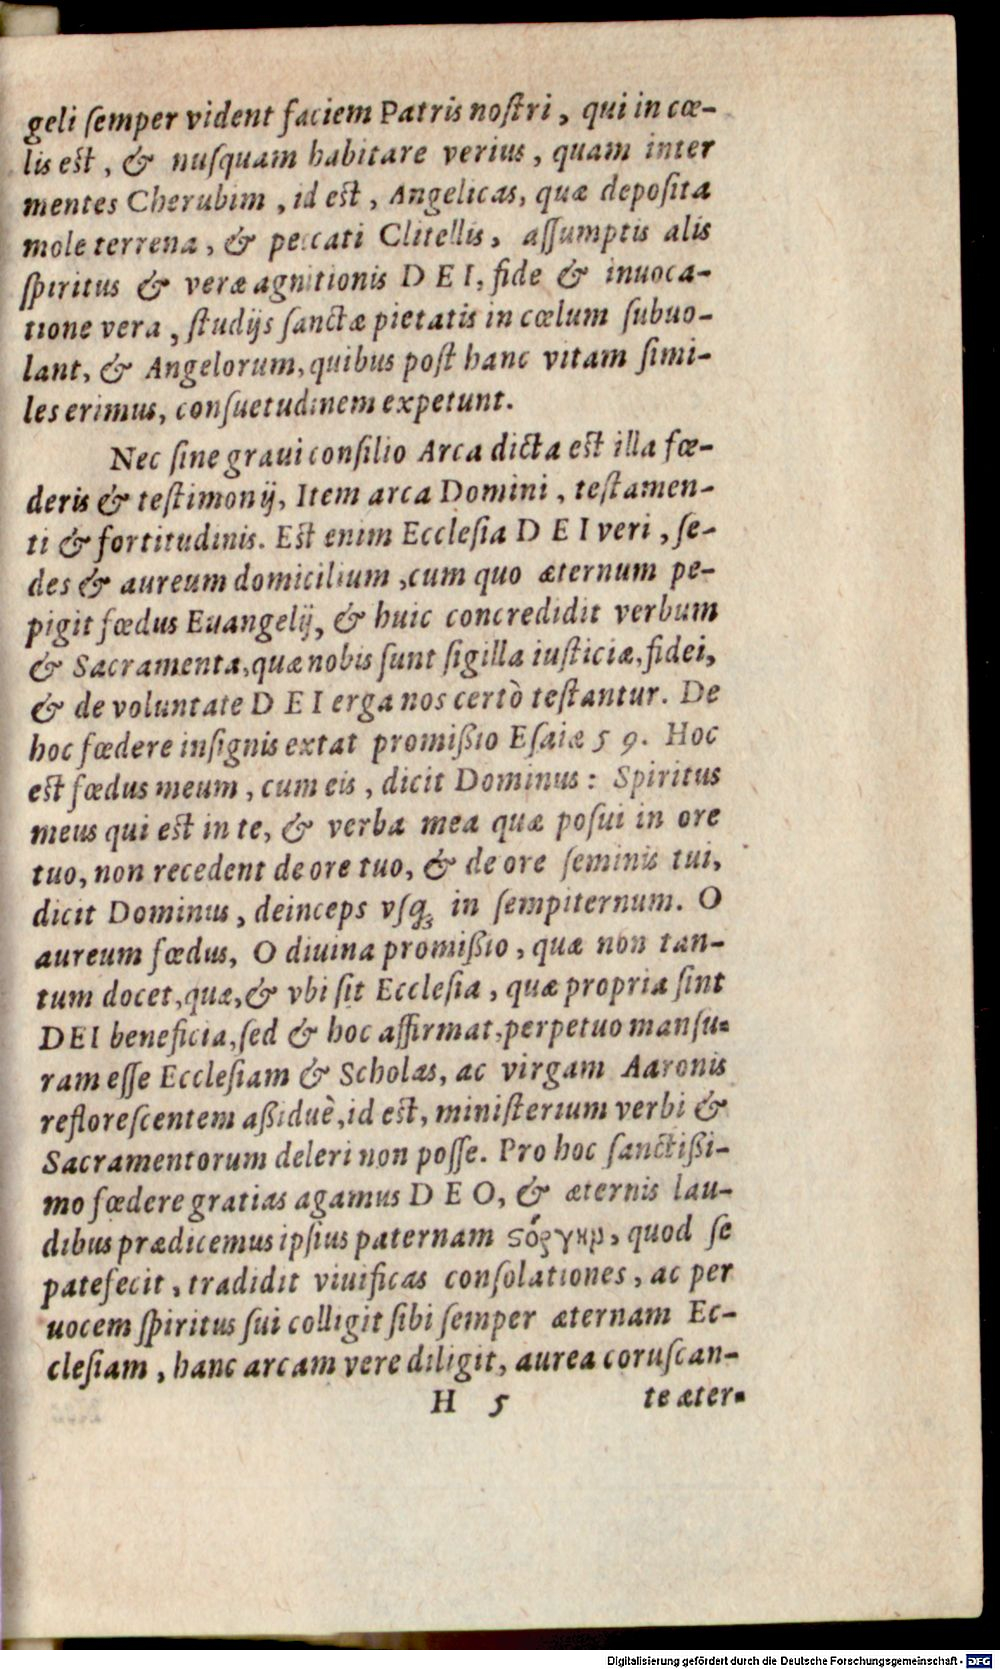 geli ſemper vident faciem Patris noſtri, qui in cœ-
lis eſt, & nuſquam habitare verius, quam inter
mentes Cherubim, id eſt, Angelicas, quæ depoſita
mole terrena, & peccati Clitellis, aſſumptis alis
ſpiritus & veræ agnitionis D E I, fide & inuoca-
tione vera, ſtudijs ſanctæ pietatis in cœlum ſubuo-
lant, & Angelorum, quibus poſt hanc vitam ſimi-
les erimus, conſuetudinem expetunt.
Nec ſine graui conſilio Arca dicta eſt illa fœ-
deris & teſtimonij, Item arca Domini, teſtamen-
ti & fortitudinis. Eſt enim Eccleſia D E I veri, ſe-
des & aureum domicilium, cum quo æternum pe-
pigit fœdus Euangelij, & huic concredidit verbum
& Sacramenta, quæ nobis ſunt ſigilla iuſticiæ, fidei,
& de voluntate D E I erga nos certò teſtantur. De
hoc fœdere inſignis extat promißio Eſaiæ 59. Hoc
eſt fœdus meum, cum eis, dicit Dominus: Spiritus
meus qui eſt in te, & verba mea quæ poſui in ore
tuo, non recedent de ore tuo, & de ore ſeminis tui,
dicit Dominus, deinceps vſq; in ſempiternum. O
aureum fœdus, O diuina promißio, quæ non tan-
tum docet, quæ, & vbi ſit Eccleſia, quæ propria ſint
DEI beneficia, ſed & hoc affirmat, perpetuo manſu-
ram eſſe Eccleſiam & Scholas, ac virgam Aaronis
refloreſcentem aßiduè, id eſt, miniſterium verbi &
Sacramentorum deleri non poſſe. Pro hoc ſanctißi-
mo fœdere gratias agamus D E O, & æternis lau-
dibus prædicemus ipſius paternam ςόργην, quod ſe
patefecit, tradidit viuificas conſolationes, ac per
uocem ſpiritus ſui colligit ſibi ſemper æternam Ec-
cleſiam, hanc arcam vere diligit, aurea coruſcan-
H 5 te æter-
Digitalisierung gefördert durch die Deutsche Forschungsgemeinschaft - DFG